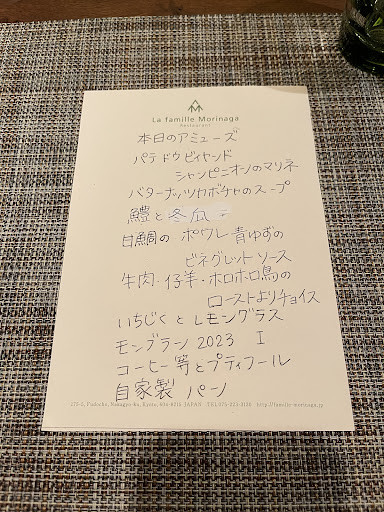 La famille Morinaga
Restaurant
本日のアミューズ
パテ ドウ ビィヤンド
シャンピニオンのマリネ
バターナッツカボチャのスープ
鱧と冬瓜
甘鯛の ポワレ 青ゆずの
ビネグレット ソース
牛肉・仔羊・ホロホロ鳥の
ローストよりチョイス
いちじくとレモングラス
モンブラン 2023 I
コーヒー等とプティフール
自家製 パン
Kyoto, 604-8216 JAPAN TEL 075-223-3126 http://famille-morinaga.jp